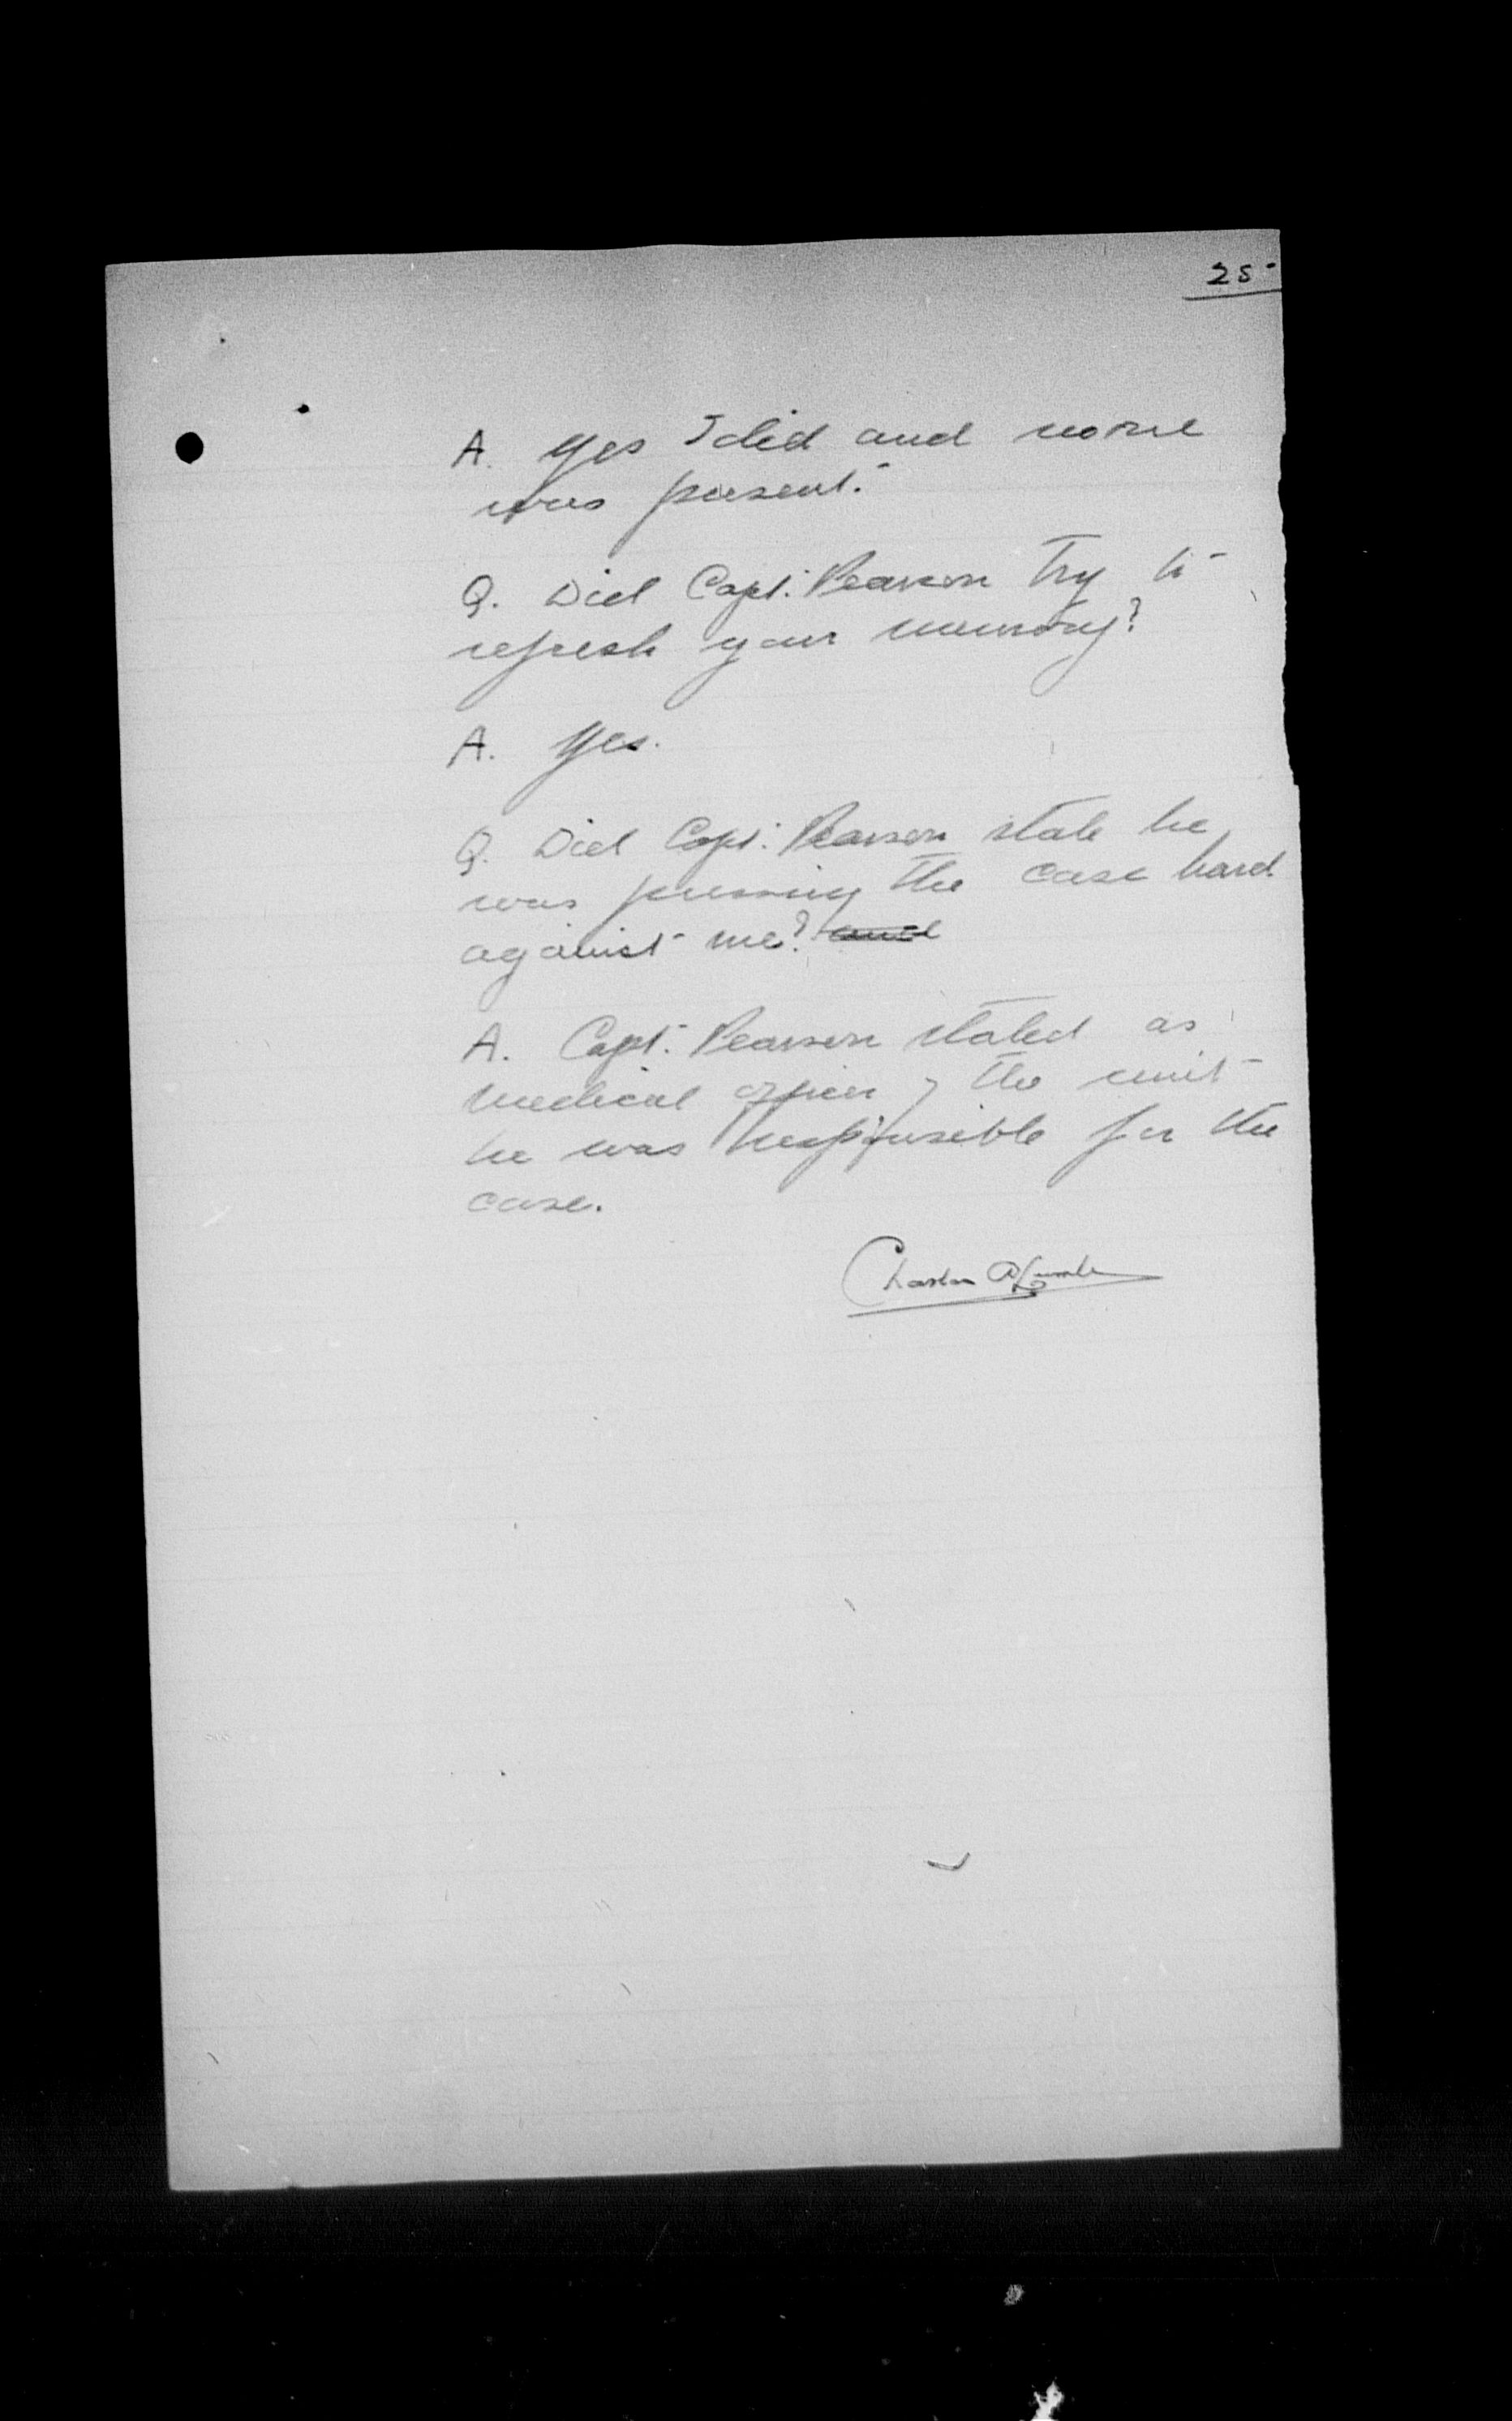 25
A. Yes I did and none
was present.
Q. Did Capt. Pearson try to
refresh your memory?
A. Yes.
Q. Did Capt. Pearson state he
was pressing the case hard
against me? and
A. Capt. Pearson stated as
medical officer of the unit
he was responsible for the
case.
Charles